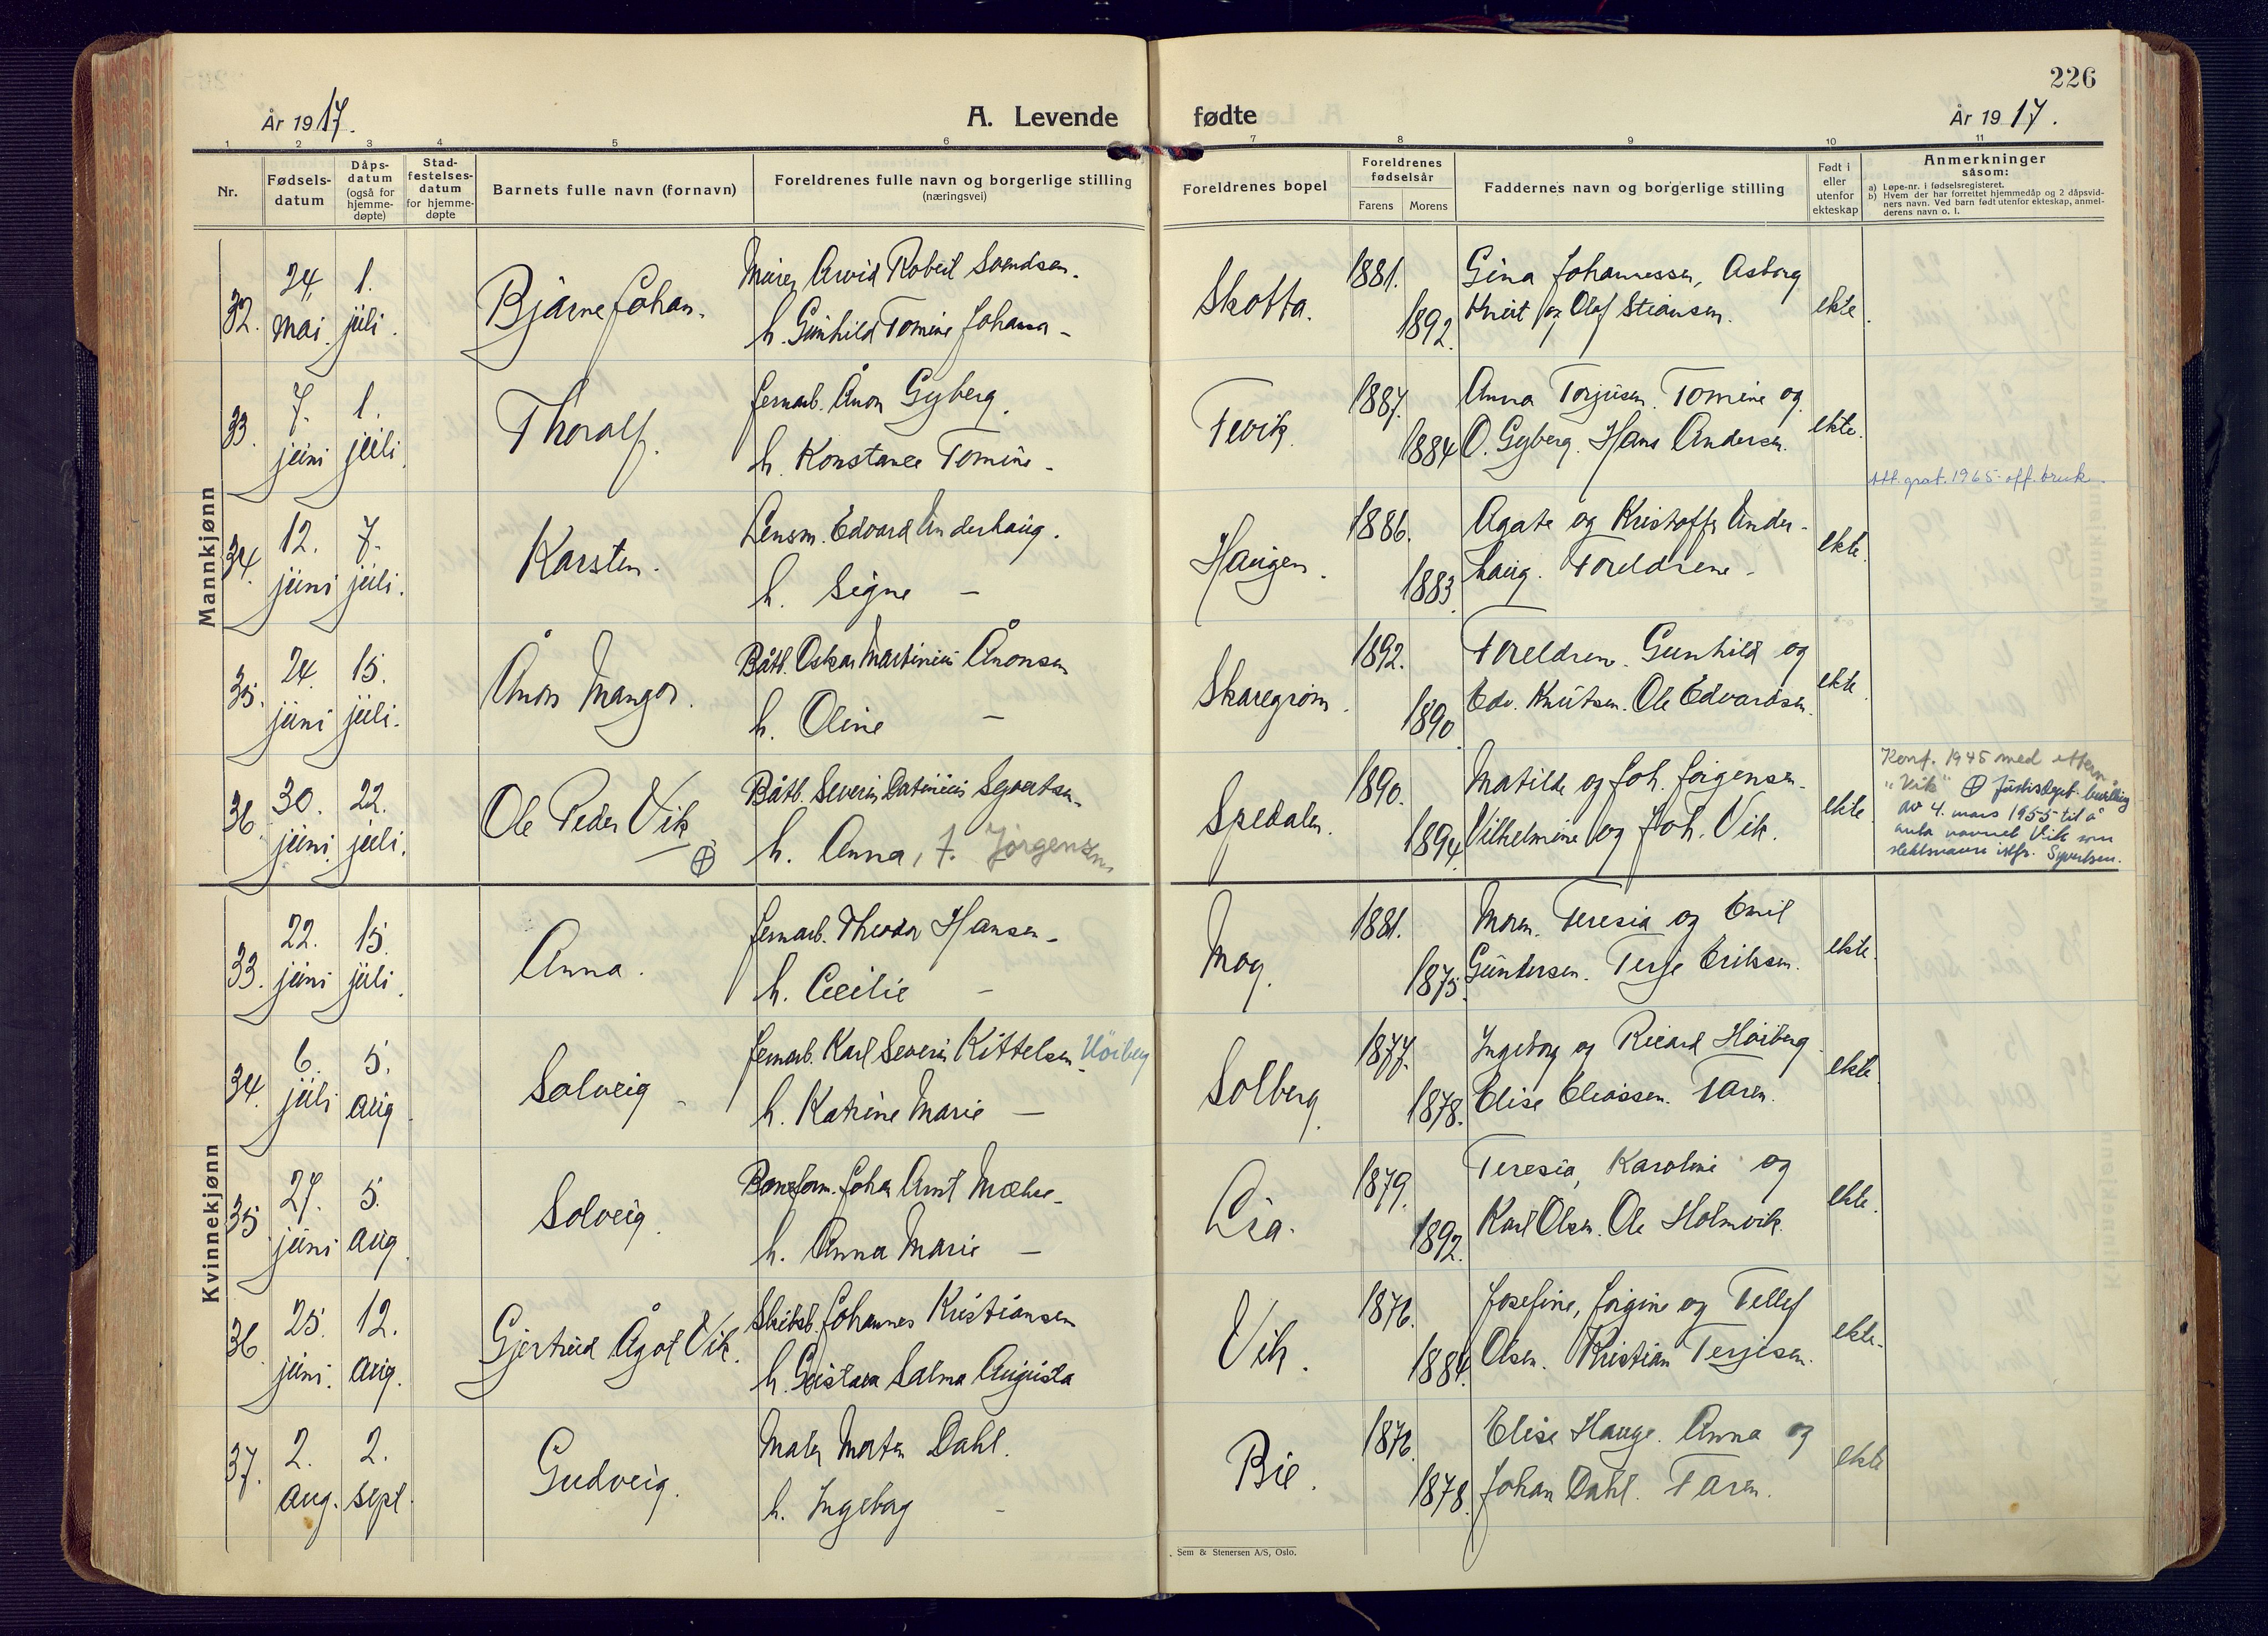 226
År 1917.
A. Levende fødte
År 1917.
1 2 3 4 5 6 7 8 9 10 11
Nr.
Fødsels-
datum
Dåps-
datum
(også for
hjemme-
døpte)
Stad-
festelses-
datum
for hjemme-
døpte
Barnets fulle navn (fornavn)
Foreldrenes fulle navn og borgerlige stilling
(næringsvei)
Foreldrenes bopel
Foreldrenes
fødselsår
Farens Morens
Faddernes navn og borgerlige stilling
Født i
eller
utenfor
ekteskap
Anmerkninger
såsom:
a) Løpe-nr. i fødselsregisteret.
b) Hvem der har forrettet hjemmedåp og 2 dåpsvid-
ners navn. Ved barn født utenfor ekteskap, anmel-
derens navn o. l.
Mannkjønn
32. 24. mai. 1. juli. Bjarne Johan.
Murer Arvid Robert Svendsen.
h. Gunhild Tomine Johanna -
Skotta. 1881. 1892.
Gina Johannessen, Asborg
Knut og Olaf Stiansen.
ekte.
33. 7. juni 1. juli. Thoralf.
Jernarb. Ånon Gyberg.
h. Konstance Tomine -
Fevik. 1887. 1884
Anna Torjusen. Tomine og
O. Gyberg. Hans Andersen.
ekte.
Att. grat. 1965 - off. bruk.
34. 12. juni 7. juli. Karsten.
Lensm. Edvard Underhaug.
h. Signe -
Haugen. 1886. 1883.
Agate og Kristoffer Under-
haug. Foreldrene -
ekte.
35. 24. juni 15. juli. Ånon Mangor.
Båtb. Oskar Martinius Ånonsen
h. Oline -
Skaregrøm. 1892. 1890.
Foreldren. Gunhild og
Edv. Knutsen. Ole Edvardsen.
ekte.
36. 30. juni. 22. juli. Ole Peder Vik ⊕
Båtb. Severin Datinius Syvertsen.
h. Anna, f. Jørgensen
Spedalen. 1890. 1894.
Matilde og Joh. Jørgensen.
Vilhelmine og Joh. Vik.
ekte.
Konf. 1945 med ettern.
"Vik" ⊕ Justisdept. bevilling
av 4. mars 1955 til å
anta navnet Vik som
slektsnavn istf. Syvertsen.
Kvinnekjønn
33. 22. juni 15. juli. Anna.
Jernarb. Theodor Hansen -
h. Cecilie -
Moy. 1881. 1875.
Moren. Teresia og Emil
Gundersen. Terje Eriksen.
ekte.
34. 6. juli 5. aug. Solveig -
Jernarb. Karl Severin Kittelsen Høiberg
h. Katrine Marie -
Solberg. 1877. 1878.
Ingeborg og Rikard Høiberg.
Elise Eliassen. Faren.
ekte.
35 27. juni 5. aug. Solveig.
Johan Arnt Mæhre -
h. Anna Marie -
Lia. 1879. 1892.
Teresia, Karoline og
Karl Olsen. Ole Holmvik.
ekte.
36. 25. juni. 12. aug. Gjertrud Ågot Vik.
Skibsb. Johannes Kristiansen
h. Gustava Salma Augusta
Vik. 1876. 1884.
Josefine, Jørgine og Tellef
Olsen. Kristian Terjesen.
ekte.
37. 2. aug. 2. sept. Gudveig.
Maler Morten Dahl.
h. Ingeborg -
Bie. 1876. 1878.
Elise Hauge. Anna og
Johan Dahl. Faren.
ekte
Sem & Stenersen A/S, Oslo.